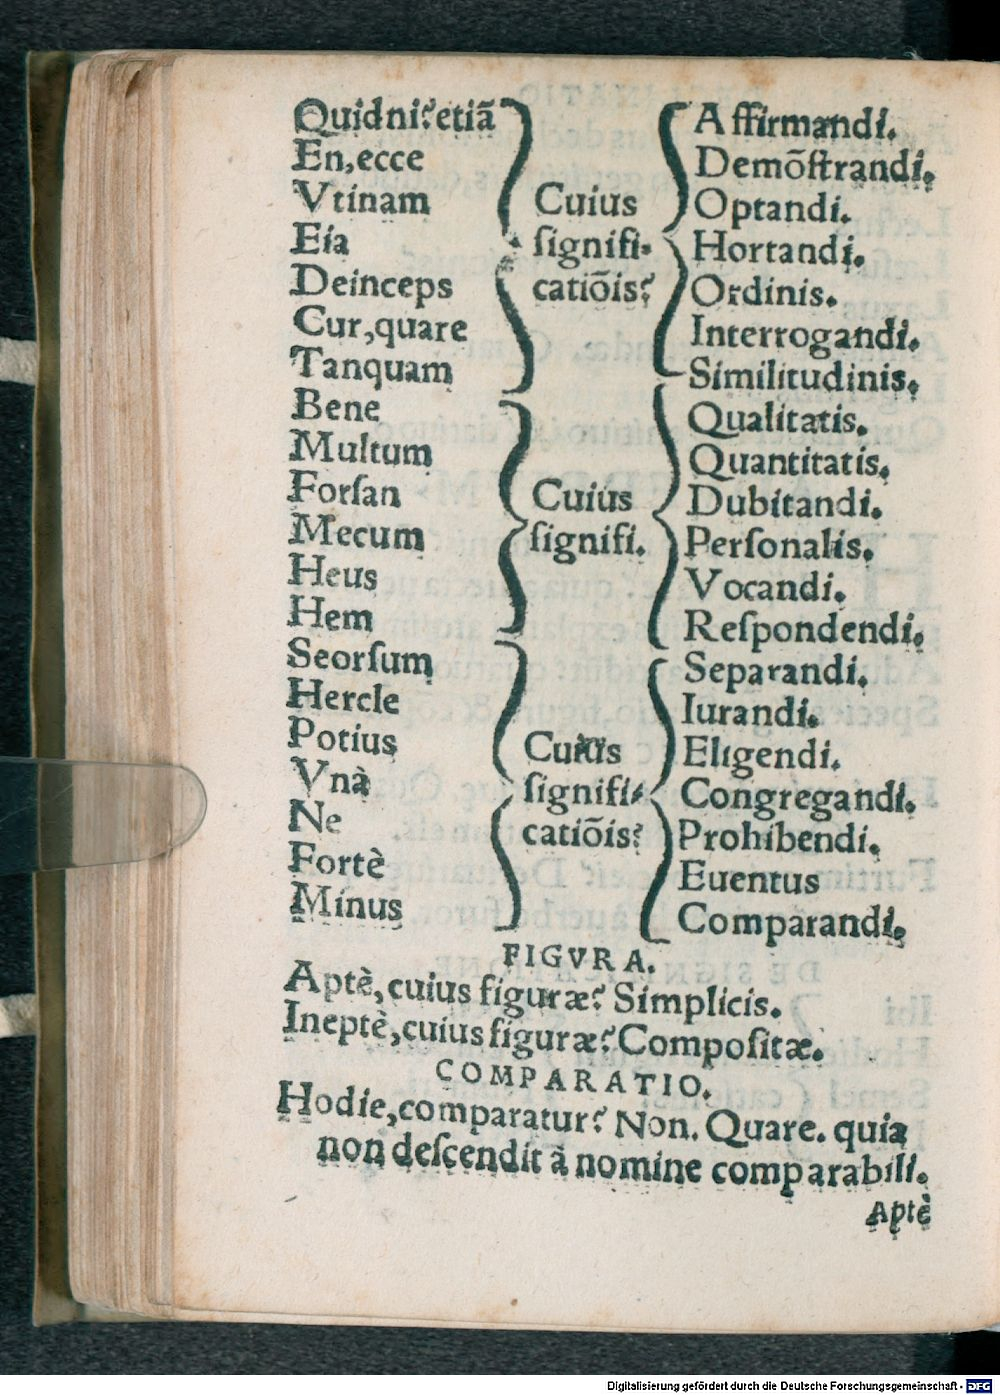 Quidni? etiã
En, ecce
Vtinam
Eia
Deinceps
Cur, quare
Tanquam
Cuius
signifi-
catiõis?
Affirmandi.
Demõſtrandi.
Optandi.
Hortandi.
Ordinis.
Interrogandi.
Similitudinis.
Bene
Multum
Forſan
Mecum
Heus
Hem
Cuius
ſignifi.
Qualitatis.
Quantitatis.
Dubitandi.
Perſonalis.
Vocandi.
Reſpondendi.
Seorſum
Hercle
Potius
Vnà
Ne
Fortè
Minus
Cuius
ſignifi-
catiõis?
Separandi.
Iurandi.
Eligendi.
Congregandi.
Prohibendi.
Euentus
Comparandi.
FIGVRA.
Aptè, cuius figuræ? Simplicis.
Ineptè, cuius figuræ? Compoſitæ.
COMPARATIO.
Hodie, comparatur? Non. Quare. quia
non deſcendit à nomine comparabili.
Aptè
Digitalisierung gefördert durch die Deutsche Forschungsgemeinschaft - DFG